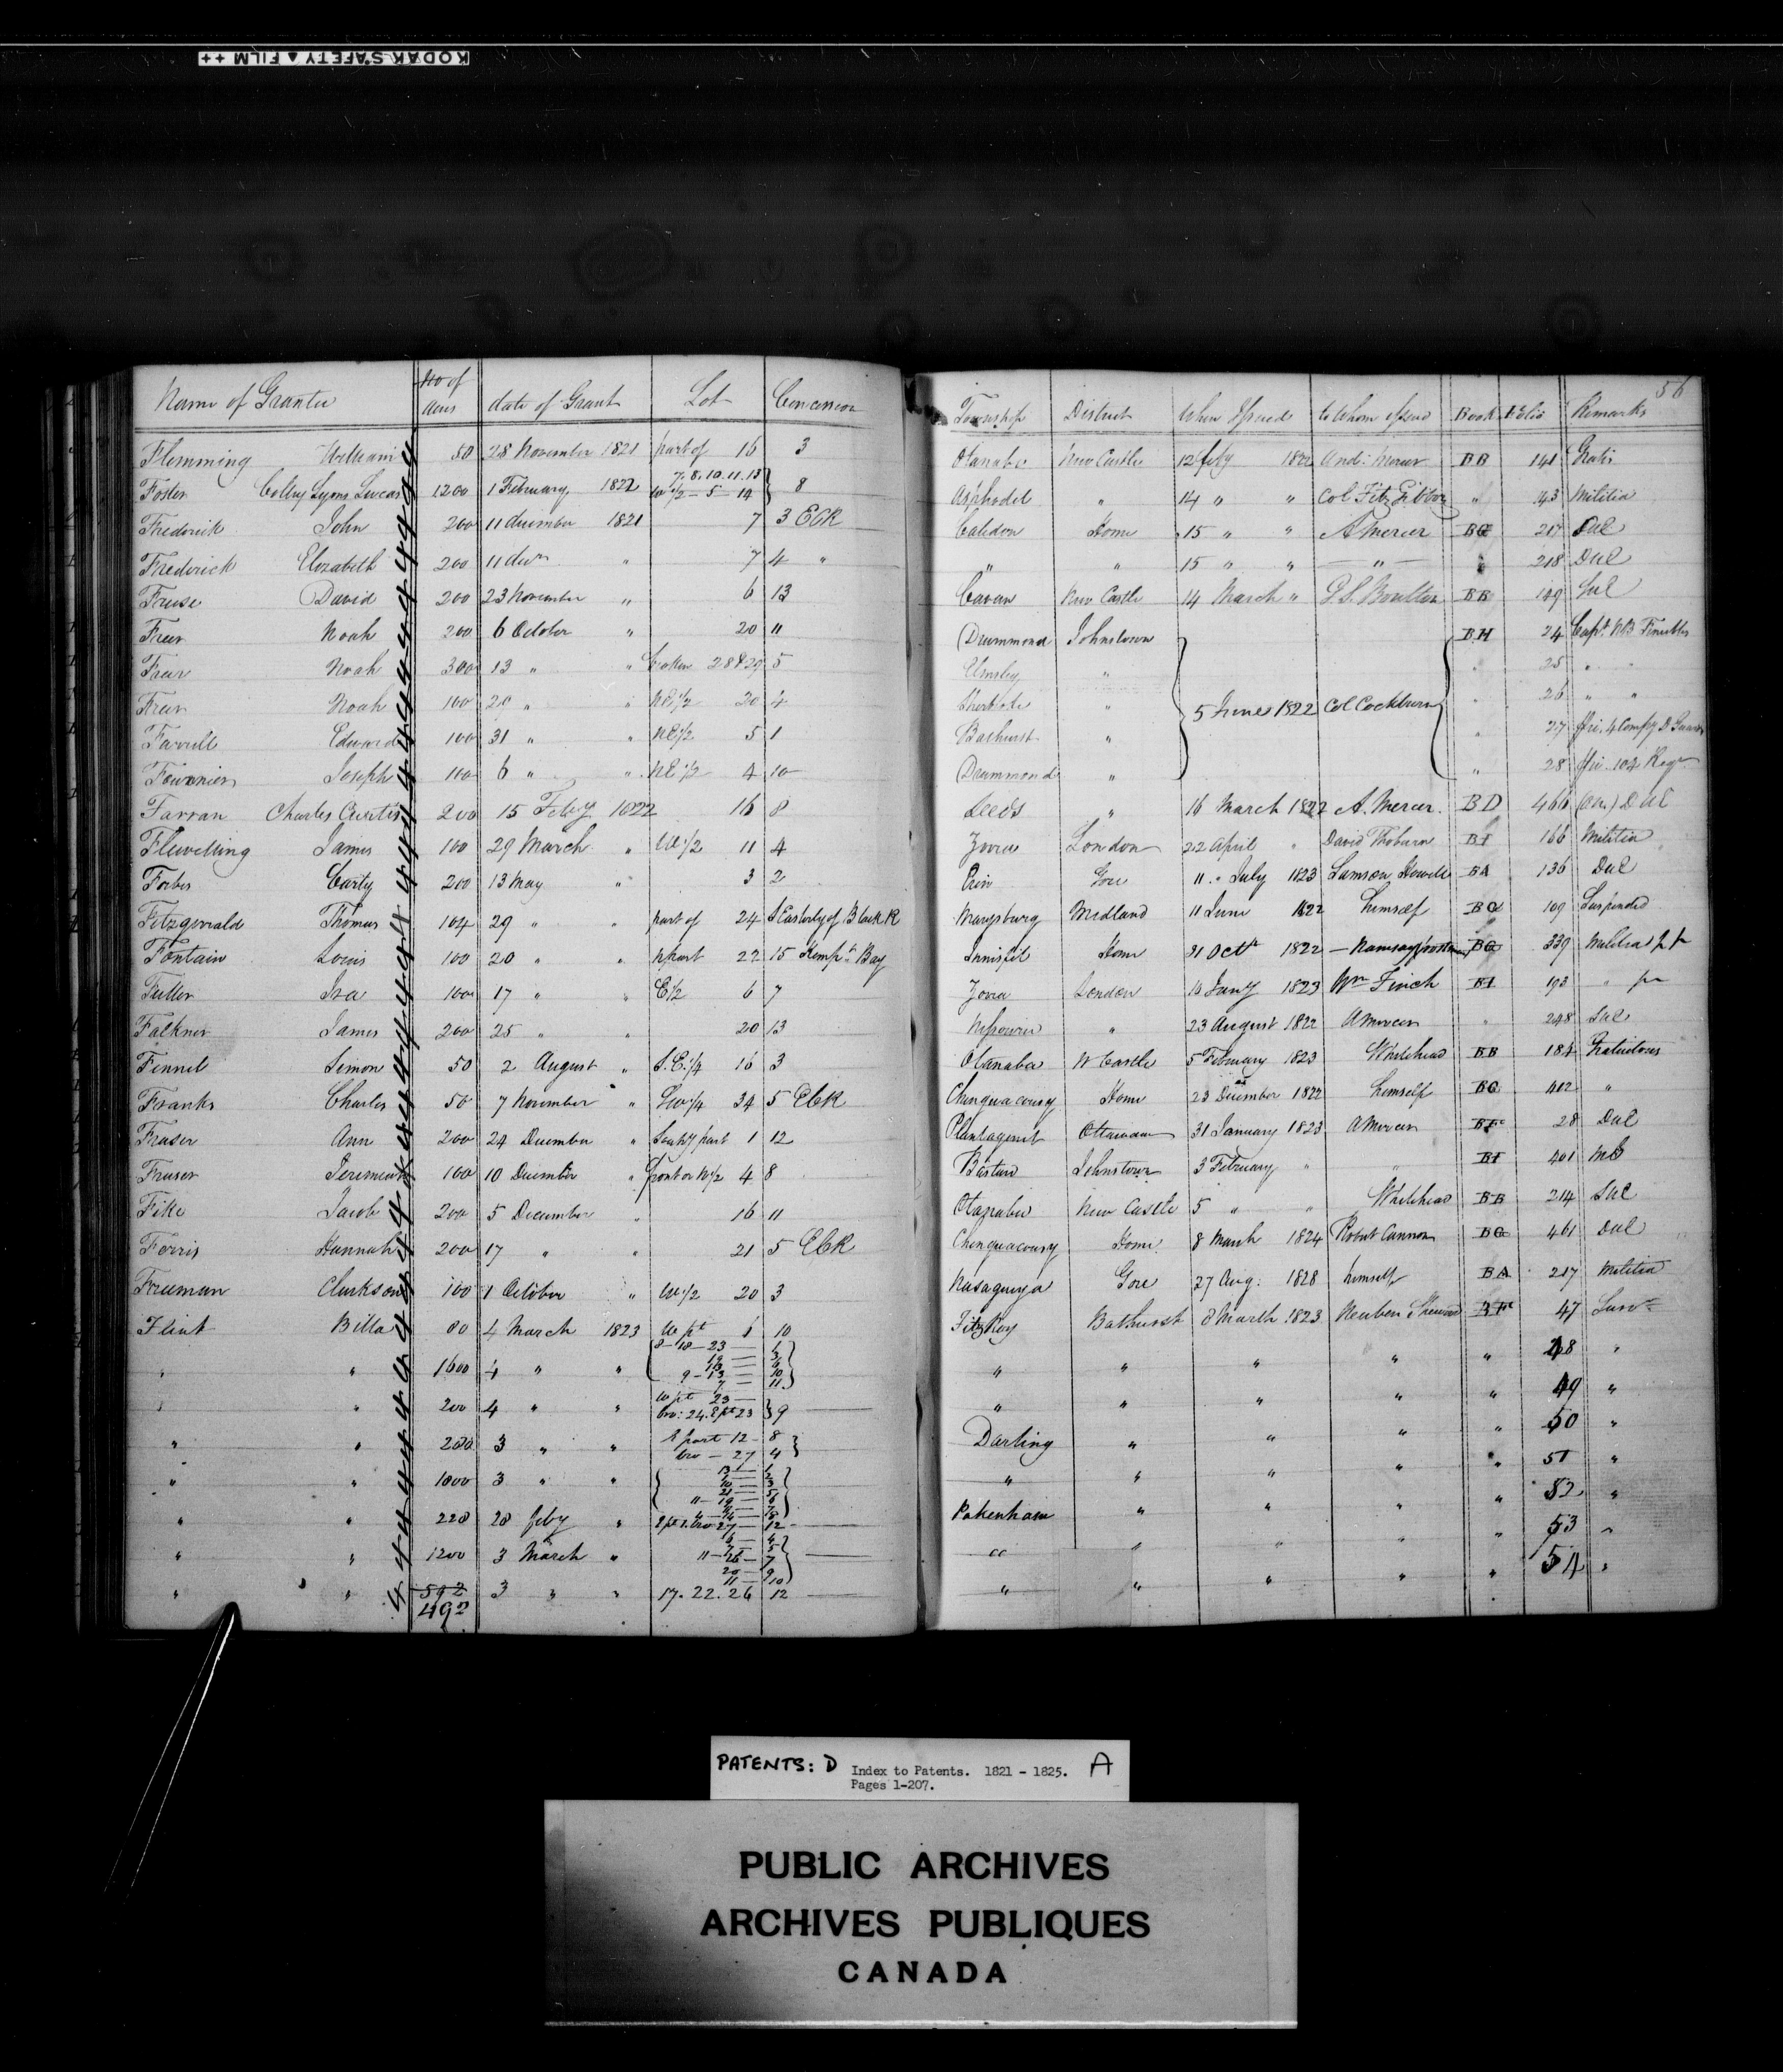 KODAK SAFETY ▲ FILM ++
56
Name of Grantee No of Acres date of Grant Lot Concession Township District When Issued to Whom issued Book Folio Remarks
Flemming William 50 28 November 1821 part of 16 3 Otanabe New Castle 12 feby 1822 And: Mercer BB 141 Gratis
Foster Colley Lyons Lucas 1200 1 February 1822 7, 8, 10. 11. 13 W 1/2 - 5 - 14 } 8 Asphodel " 14 " " Col Fitz Gibbon " 43 Militia
Frederick John 200 11 december 1821 7 3 ECR Caledon Home 15 " " A Mercer BC 217 Sue
Frederick Elizabeth 200 11 decr " 7 4 " " " 15 " " " 218 DUE
David 200 23 November " 6 13 Cavan New Castle 14 March " G. S. Boulton BB 149 SUE
Freer Noah 200 6 October " 20 11 Drummond Johnstown BH 24 Capt. NB Fencibles
Freer Noah 300 13 " " Broken 28 & 29 5 Elmsley " " 25 " "
Freer Noah 100 29 " " NE 1/2 20 4 " " 26 " "
5 June 1822 Col Cockburn
Farrell Edward 100 31 " " NE 1/2 5 1 Bathurst " " 27
Fournier Joseph 100 6 " " NE 1/2 4 10 Drummond " " 28 104 Regt
Farran Charles Curtis 200 15 Feby 1822 16 8 Leeds " 16 March 1822 A. Mercer. BD 466 DUE
Flewelling James 100 29 March " W 1/2 11 4 Zorra London 22 April " David Thorburn BI 166 Militia
Forbes Carty 200 13 May " 3 2 Erin Gore 11 " July 1823 Lamson Dowell BA 136 DUE
Fitzgerald Thomas 104 29 " " part of 24 1 Easterly of Black R Marysburg Midland 11 June 1822 himself BG 109 Suspended
Fontain Louis 100 20 " " N part 22 15 Kempt Bay Innisfil Home 31 Octr 1822 BG 339
Fuller Ira 100 17 " " E 1/2 6 7 Zorra London 10 Jany 1823 Wm Finch BI 193 "
Falkner James 200 25 " " 20 13 " 23 August 1822 A Mercer " 248 SUE
Finnel Simon 50 2 August " S. E. 1/4 16 3 Otanabee N Castle 5 February 1823 Whitehead BB 184 Gratuitous
Franks Charles 50 7 November " SW 1/4 34 5 ECR Chinguacousy Home 23 December 1822 himself BG 402 "
Fraser Ann 200 24 December " Southy part 1 12 Plantagenet Ottawa 31 January 1823 A Mercer 28 DUE
Fraser Jeremiah 100 10 December " front or N 1/2 4 8 Bastard Johnstown 3 February " " 401
Fike Jacob 200 5 December " 16 11 Otanabee New Castle 5 " " Whitehead BB 214 SUE
Ferris Hannah 200 17 " " 21 5 ECR Chinguacousy Home 8 March 1824 Robert Cannon BG 461 DUE
Freeman Clarkson 100 1 October " W 1/2 20 3 Nasagiweya Gore 27 Aug: 1828 himself BA 217 Militia
Flint Billa 80 4 March 1823 W pt 1 10 Fitz Roy Bathurst 8 March 1823 Reuben Sherwood 47
" " 1600 4 " " " " " " " 48 "
" " 200 4 " " W pt 23 Bro: 24. E pt 23 } 9 " " " " " 49 "
" " 200 3 " " 12 - 8 Bro - 27 4 Darling " " " " 50 "
" " 1000 3 " " " " " " " 51 "
" " 228 28 feby " 12 Pakenham " " " " 52 "
" " 1200 3 March " " " " " " 53 "
" " 592 492 3 " " 17. 22. 26 12 " " " " " 54 "
PATENTS: D Index to Patents. 1821 - 1825. A
Pages 1-207.
PUBLIC ARCHIVES
ARCHIVES PUBLIQUES
CANADA